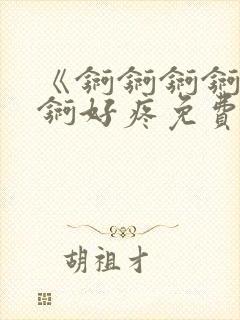 《锕锕锕锕
锕好疼免費
胡祖才